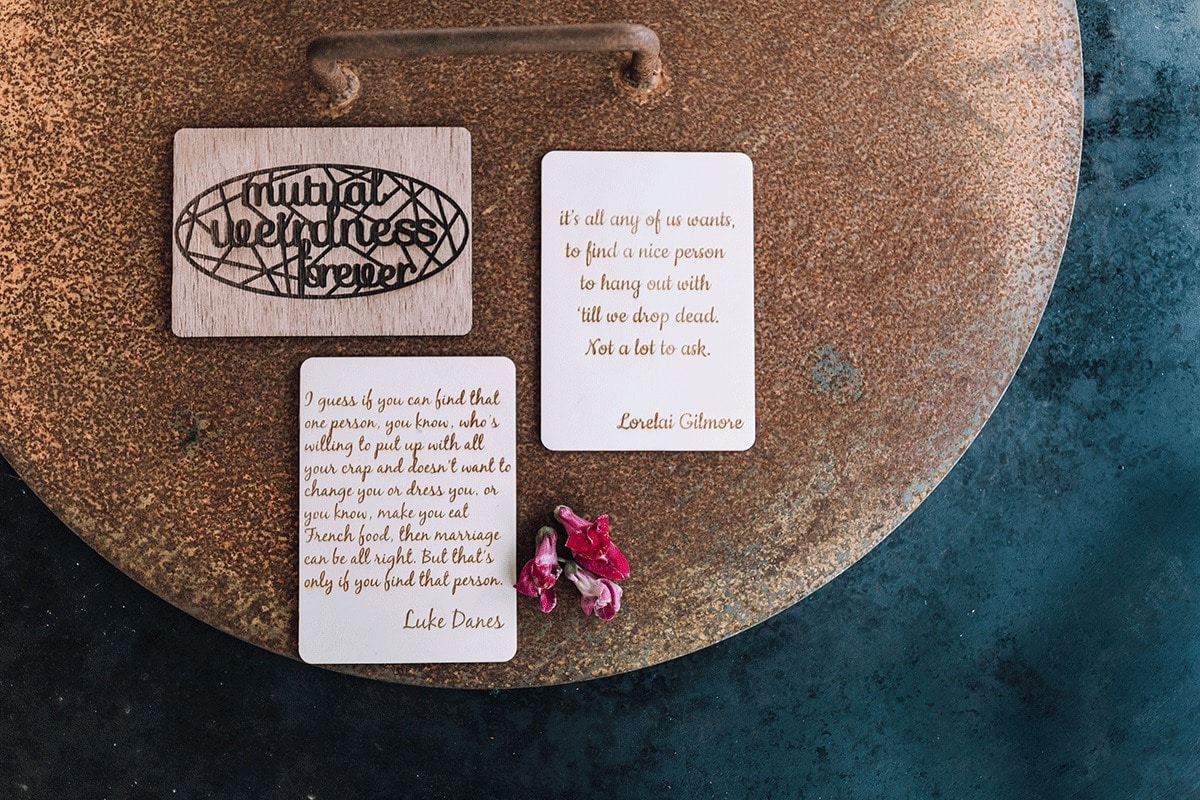 mutual
weirdness
forever
it's all any of us wants,
to find a nice person
to hang out with
'till we drop dead.
Not a lot to ask.
Lorelai Gilmore
I guess if you can find that
one person, you know, who's
willing to put up with all
your crap and doesn't want to
change you or dress you, or
you know, make you eat
French food, then marriage
can be all right. But that's
only if you find that person.
Luke Danes